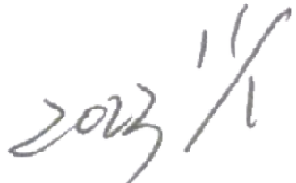 2023 11/1